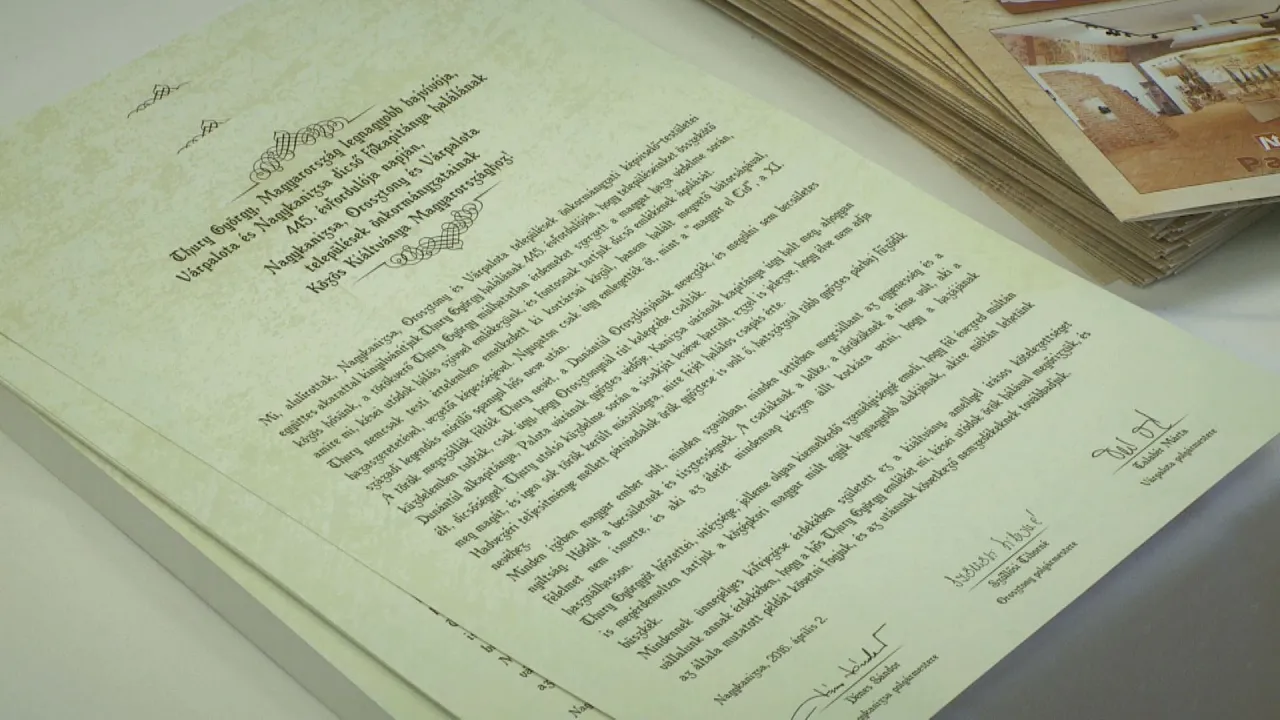 Thury György, Magyarország legnagyobb bajvívója,
Várpalota és Nagykanizsa dicső főkapitánya halálának
445. évfordulója napján,
Nagykanizsa, Orosztony és Várpalota
települések önkormányzatainak
Közös Kiáltványa Magyarországhoz!
Mi, alulírottak, Nagykanizsa, Orosztony és Várpalota települések önkormányzati képviselő-testületei
együttes akarattal kinyilvánítjuk Thury György halálának 445. évfordulóján, hogy településeinket összekötő
közös hősünk, a törökverő Thury György múlhatatlan érdemeket szerzett a magyar haza védelme során,
amire mi, kései utódok hálás szívvel emlékezünk és fontosnak tartjuk dicső emlékének ápolását.
Thury nemcsak testi értelemben emelkedett ki kortársai közül, hanem halált megvető bátorságával,
hazaszeretetével, vezetői képességeivel. Nyugaton csak úgy emlegették őt, mint a "magyar el Cid", a XI.
századi legendás párviadal spanyol hős neve után.
A török megszállók félték Thury nevét, a Dunántúl Oroszlánjának nevezték, és megölni sem becsületes
küzdelemben tudták, csak úgy, hogy Orosztonynál rút kelepcébe csalták.
Dunántúl alkapitánya, Palota várának győztes védője, Kanizsa várának kapitánya úgy halt meg, ahogyan
élt, dicsőséggel. Thury utolsó küzdelme során a sisakját leséve harcolt, ezzel is jelezve, hogy élve nem adja
meg magát, és igen sok török került másvilágra, mire fejét halálos csapás érte.
Hadvezéri teljesítménye mellett párviadalok örök győztese is volt ő, hatszáznál több győztes párbaj fűződik
nevéhez.
Minden ízében magyar ember volt, minden szavában, minden tettében megcsillant az egyenesség és a
nyíltság. Hódolt a becsületnek és tisztességnek. A csatáknak a lelke, a törököknek a réme volt, aki a
félelmet nem ismerte, és aki az életét mindennap készen állt kockára vetni, hogy a hazájának
használhasson.
Thury Györgyöt hőstettei, vitézsége, jelleme olyan kiemelkedő személyiséggé emeli, hogy fél évezred múltán
is megérdemelten tartjuk a középkori magyar múlt egyik legnagyobb alakjának, akire méltán lehetünk
büszkék.
Mindennek ünnepélyes kifejezése érdekében született ez a kiáltvány, amellyel írásos kötelezettséget
vállalunk annak érdekében, hogy a hős Thury György emlékét mi, kései utódok örök hálával megőrizzük és
az általa mutatott példát követni fogjuk, és az utánunk következő nemzedékeknek továbbadjuk.
Nagykanizsa, 2016. április 2.
Dénes Sándor
Nagykanizsa polgármestere
Szőllősi Tiborné
Orosztony polgármestere
Talabér Márta
Várpalota polgármestere